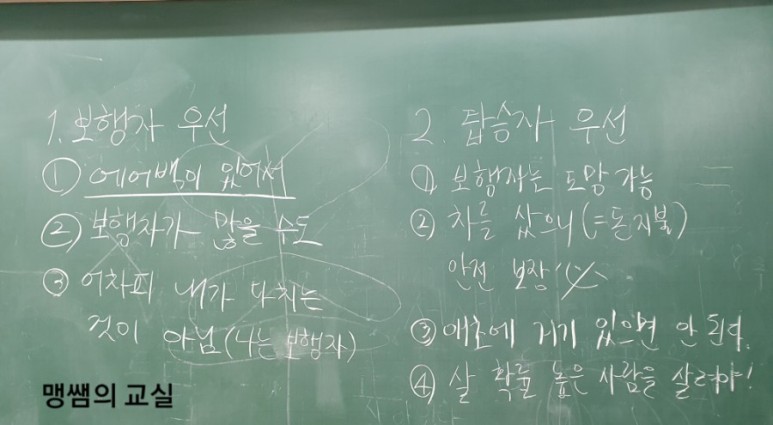 1. 보행자 우선
① 에어백이 있어서
② 보행자가 많을 수도
③ 어차피 내가 다치는
것이 아님 (나는 보행자)
2. 탑승자 우선
① 보행자는 도망 가능
② 차를 샀으니 (=돈 지불)
안전 보장
③ 애초에 거기 있으면 안 된다.
④ 살 확률 높은 사람을 살려야!
맹쌤의 교실